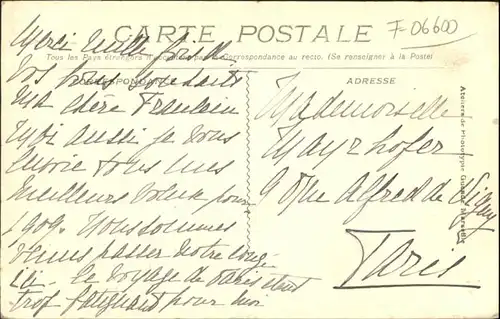 CARTE POSTALE
F-06600
Tous les Pays étrangers n'acceptent pas la Correspondance au recto. (Se renseigner à la Poste)
CORRESPONDANCE
Merci mille fois de
vos bons souhaits
Ma chère Fraulein
Moi aussi je vous
envoie tous mes
meilleurs voeux pour
1909. Nous sommes
venus passer notre congé
ici. Le voyage de Paris étant
trop fatiguant pour moi
ADRESSE
Mademoiselle
Mayrhofer
9 rue Alfred de Vigny
Paris
Ateliers de Phototypie Marseille